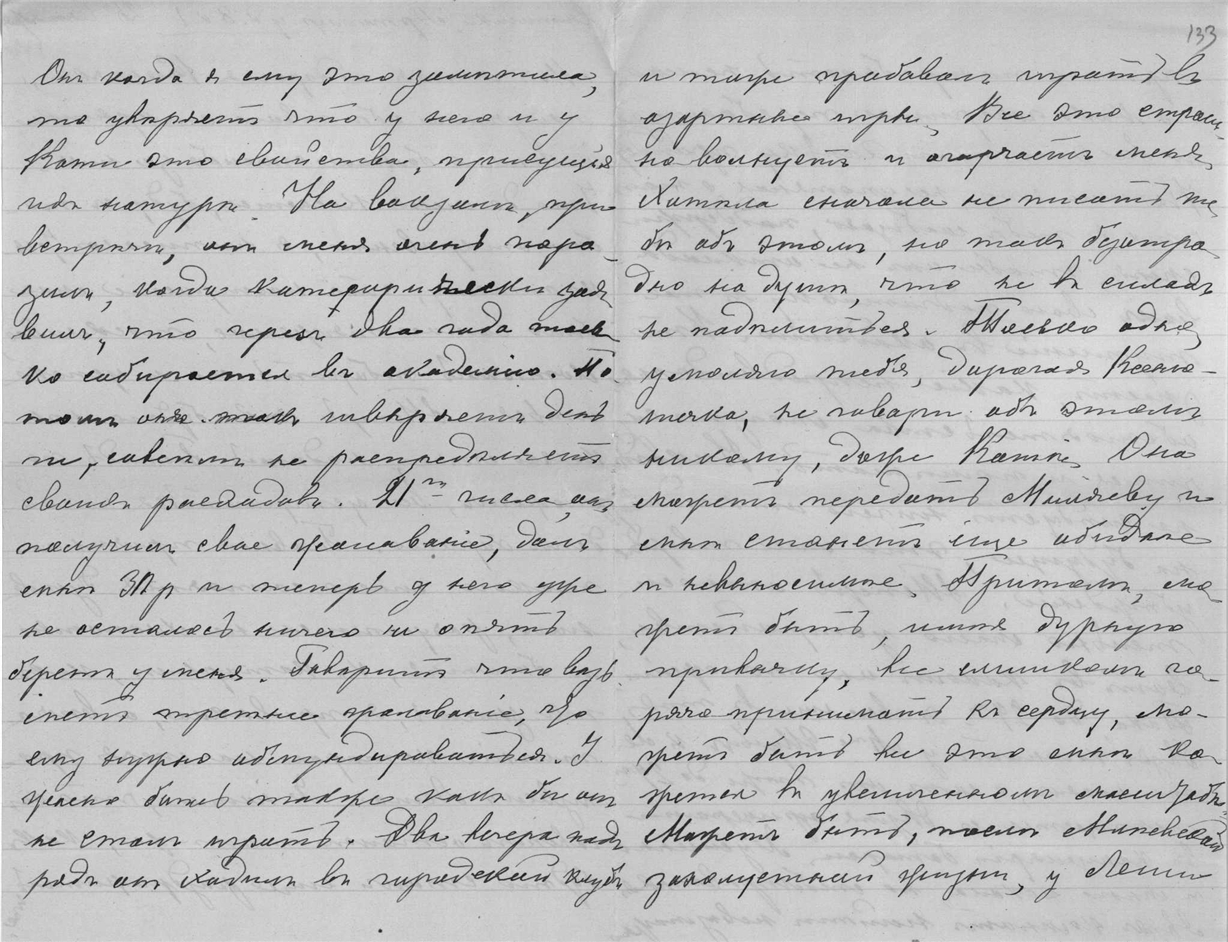 Он когда я ему это заметила,
то уверяетъ что у него и у
Кати это свойства, присущія
ихъ натурѣ. На вокзалѣ, при
встрѣчѣ, онъ меня очень пора
зилъ, когда категорически заяв
вилъ, что черезъ два года толь
ко собирается въ академію. По
томъ онъ такъ швыряетъ день
ги, совсѣмъ не распредѣляетъ
своихъ расходовъ. 21го числа, онъ
получилъ свое жалованіе, далъ
мнѣ 30 р и теперь у него уже
не осталось ничего и опять
беретъ у меня. Говоритъ что возь
метъ третное жалованіе, что
ему нужно обмундироваться. У
меня боязнь также какъ бы онъ
не сталъ играть. Два вечера под
рядъ онъ ходилъ въ городской клубъ
133
и тоже пробовалъ играть въ
азартные игры. Все это страш
но волнуетъ и огорчаетъ меня.
Хотѣла сначала не писать те
бѣ объ этомъ, но такъ безотра
дно на душѣ, что не въ силахъ
не подѣлиться. Только одно,
умоляю тебя, дорогая Ксеню-
шечка, не говори объ этомъ
никому, даже Катѣ. Она
можетъ передать Миляеву и
мнѣ станетъ еще обиднѣе
и невыносимѣе. Притомъ, мо-
жетъ быть, имѣя дурную
привычку, все слишкомъ го-
рячо принимать къ сердцу, мо-
жетъ быть все это мнѣ ка-
жется въ увеличенномъ масштабѣ.
Можетъ быть, послѣ
захолустной жизни, у Лели